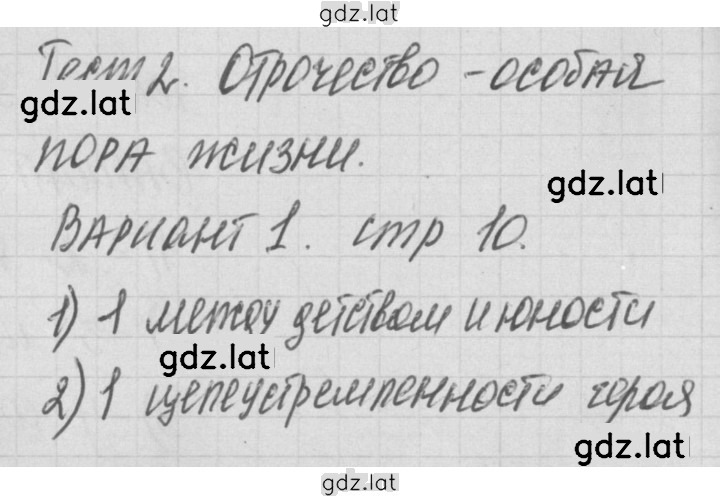 gdz.lat
Тест 2. Отрочество - особая
gdz.lat
пора жизни.
gdz.lat
Вариант 1. стр 10.
1) 1 между детством и юности
gdz.lat
2) 1 целеустремленности героя
gdz.lat
gdz.lat